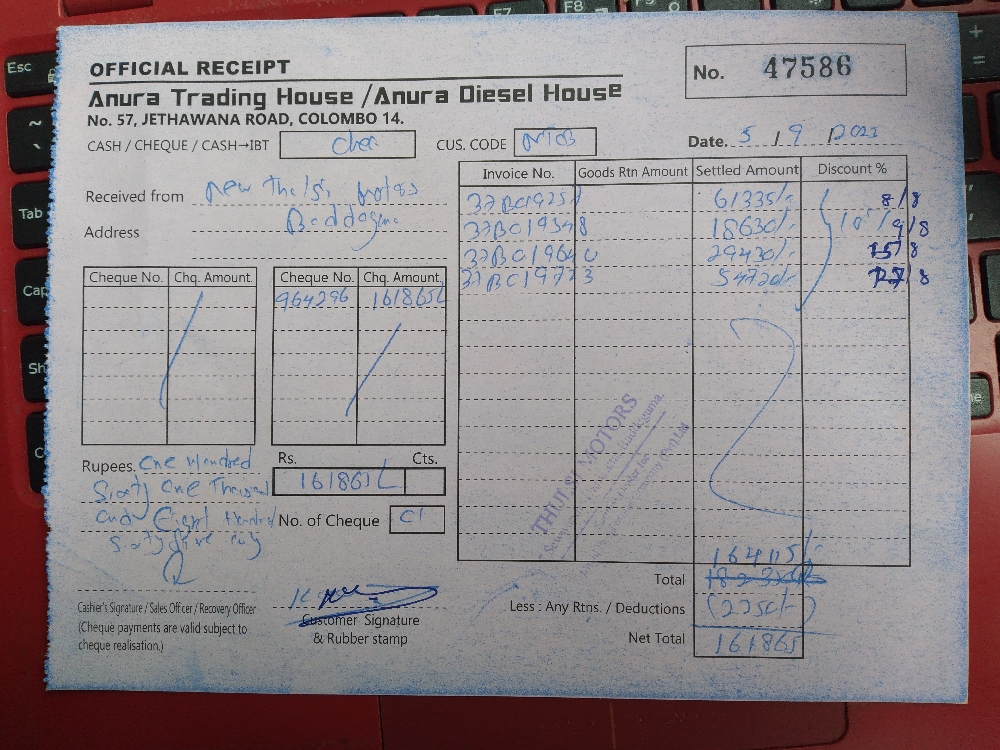 OFFICIAL RECEIPT
No. 47586
Anura Trading House /Anura Diesel House
No. 57, JETHAWANA ROAD, COLOMBO 14.
CASH / CHEQUE / CASH→IBT
CUS. CODE
Date. 5 / 9 /2022
Received from New
Address
Invoice No. Goods Rtn Amount Settled Amount Discount %
61335/- 8/8
37BC19348 18630/- 9/8
37BC19640 29430/- 15/8
37BC19773 54720/- 17/8
Cheque No. Chq. Amount Cheque No. Chq. Amount
964296 161865/-
Rupees. One Hundred
Sixty One Thousand
and Eight Hundred
Sixty five
Rs. Cts.
161865/-
No. of Cheque 01
THULSI MOTORS
164115/-
Total
Less : Any Rtns. / Deductions (2250/-)
Net Total 161865
Cashier's Signature / Sales Officer / Recovery Officer
(Cheque payments are valid subject to
cheque realisation.)
Customer Signature
& Rubber stamp
Esc
~
Tab
F7
F8